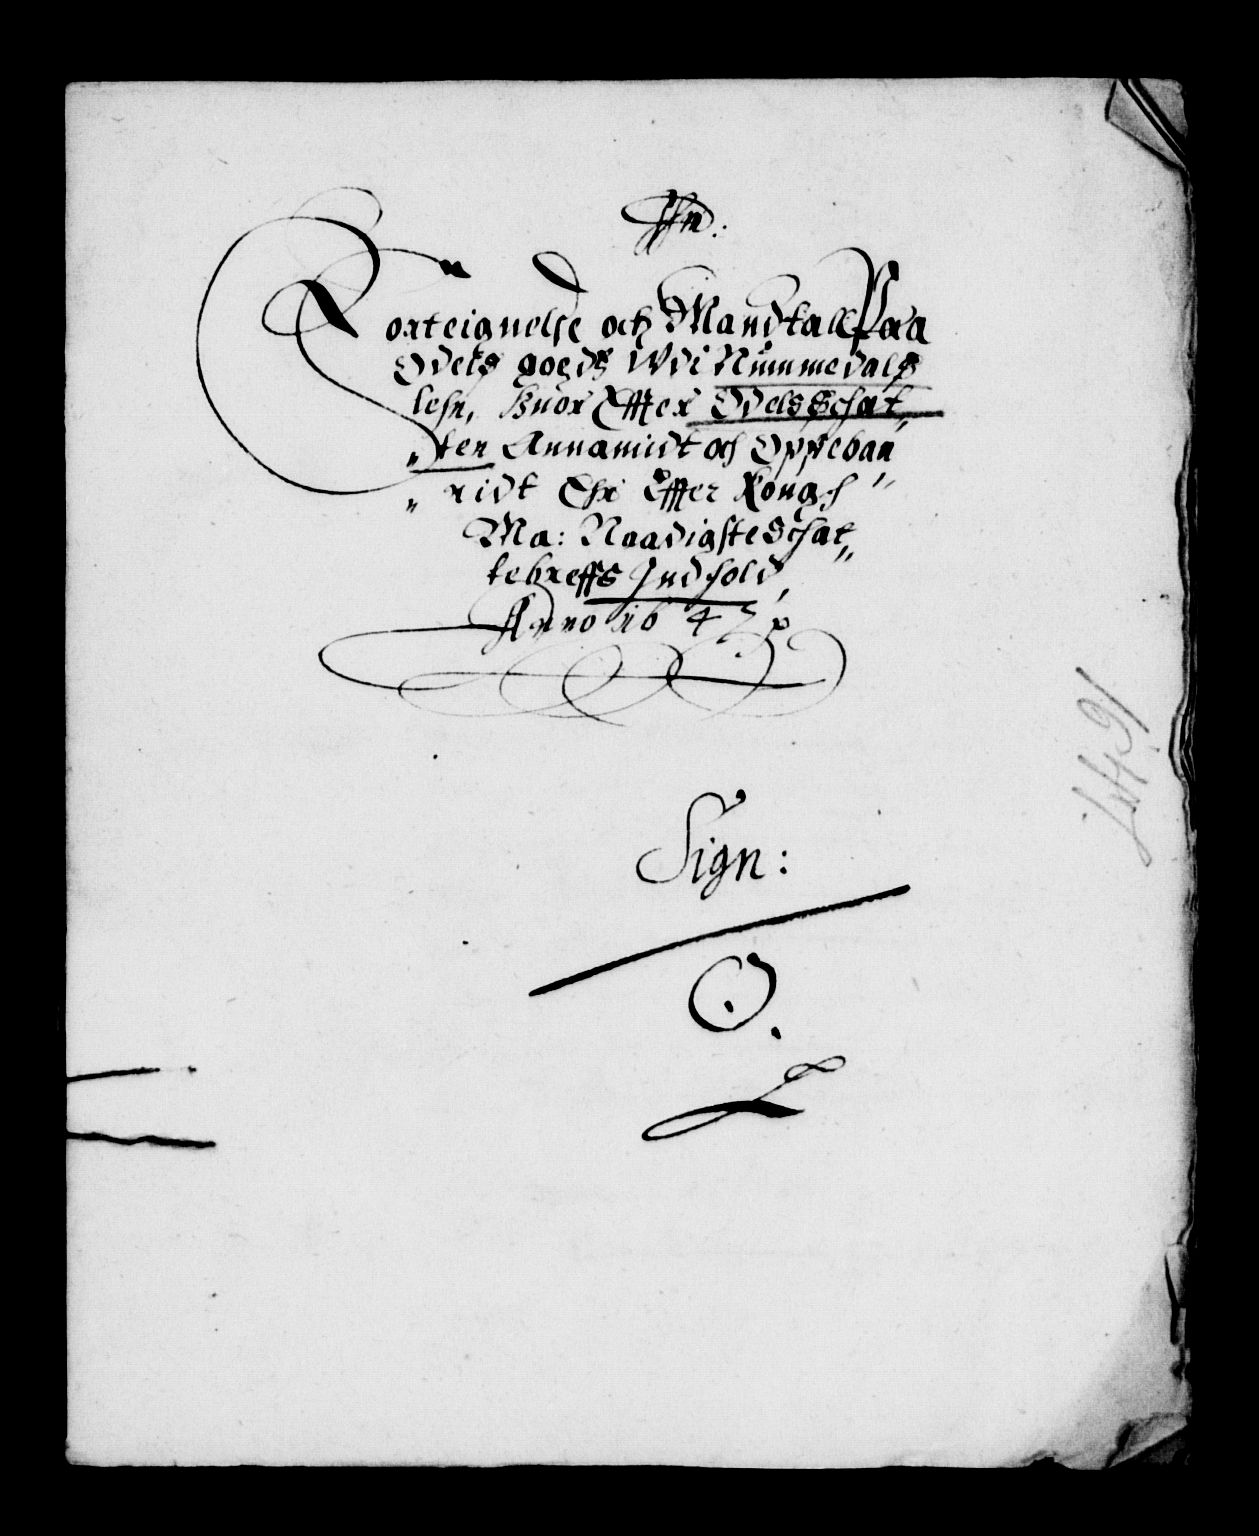 Forteignelse och Mandtall Paa
Odels goeds Wdi Nummedals
lehn, Huor Effter Odels Schat„
„ten Annamidt och Oppebaa„
„ridt Ehr Effter Kong: h
Ma: Naadigste Schat„
tebreffs Indhold,
Anno 1647
Sign:
O.
L